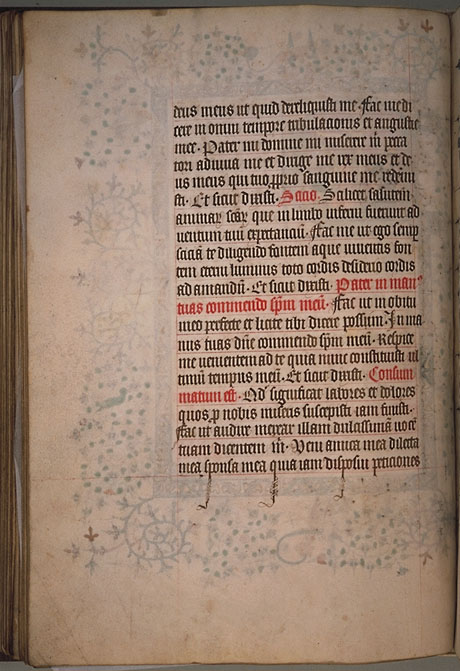 deus meus ut quid dereliquisti me. Fac me di
cere in omni tempore tribulacionis et angustie
mee. Pater mi domine mi miserere m̄ pecca
tori adiuua me et dirige me rex meus et de
us meus qui tuo p̱prio sanguine me redemi
sti. Et sicut dixisti. Scicio. Scilicet salutem
animar̄ scār̄ que in limbo inferni fuerunt ad
uentum tuū expectanciū. Fac me ut ego semp̱
sciciā te diligendo fontem aque viuentis fon
tem eterni luminis toto cordis desiderio cordis
ad amandū. Et sicut dixisti. Pater in man
tuas commendo sp̄m meū. Fac ut in obitu
meo perfecte et licite tibi dicere possum. In ma
nus tuas dn̄e commendo sp̄m meū. Respice
me venientem ad te quia nunc constituisti ul
timū tempus meū. Et sicut dixisti. Consum
matum est. Qd̄ significat labores et dolores
quos p̱ nobis miseris suscepisti iam finisti.
Fac ut audire merear illam dulcissimā uocē
tuam dicentem m̄. Veni amica mea dilecta
mea sponsa mea quia iam disposui peticiones